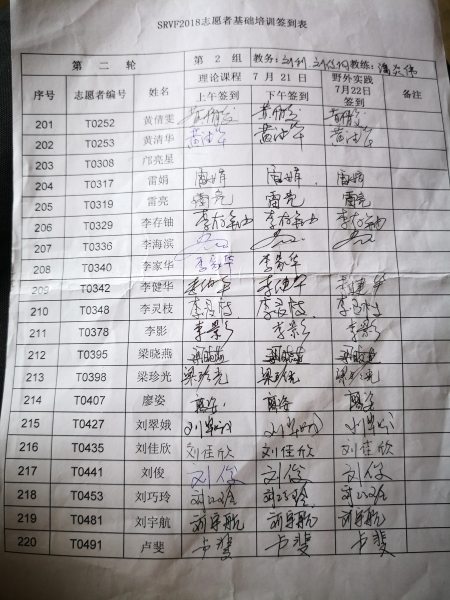 SRVF2018志愿者基础培训签到表
第 二 轮 第 2 组 教务: 教练:
序号 志愿者编号 姓名 理论课程 7 月 21 日 野外实践 备注
上午签到 下午签到 7月22日
签到
201 T0252 黄倩雯
202 T0253 黄清华 黄清华 黄清华 黄清华
203 T0308 邝亮星
204 T0317 雷娟 雷娟 雷娟 雷娟
205 T0319 雷亮 雷亮 雷亮 雷亮
206 T0329 李存铀 李存铀 李存铀 李存铀
207 T0336 李海滨
208 T0340 李家华 李家华 李家华
209 T0342 李健华 李健华 李健华 李健华
210 T0348 李灵枝 李灵枝 李灵枝 李灵枝
211 T0378 李影 李影 李影 李影
212 T0395 梁晓燕
213 T0398 梁珍光 梁珍光 梁珍光 梁珍光
214 T0407 廖姿 廖姿 廖姿 廖姿
215 T0427 刘翠娥
216 T0435 刘佳欣 刘佳欣 刘佳欣 刘佳欣
217 T0441 刘俊 刘俊 刘俊 刘俊
218 T0453 刘巧玲 刘巧玲 刘巧玲 刘巧玲
219 T0481 刘宇航 刘宇航 刘宇航 刘宇航
220 T0491 卢斐 卢斐 卢斐 卢斐